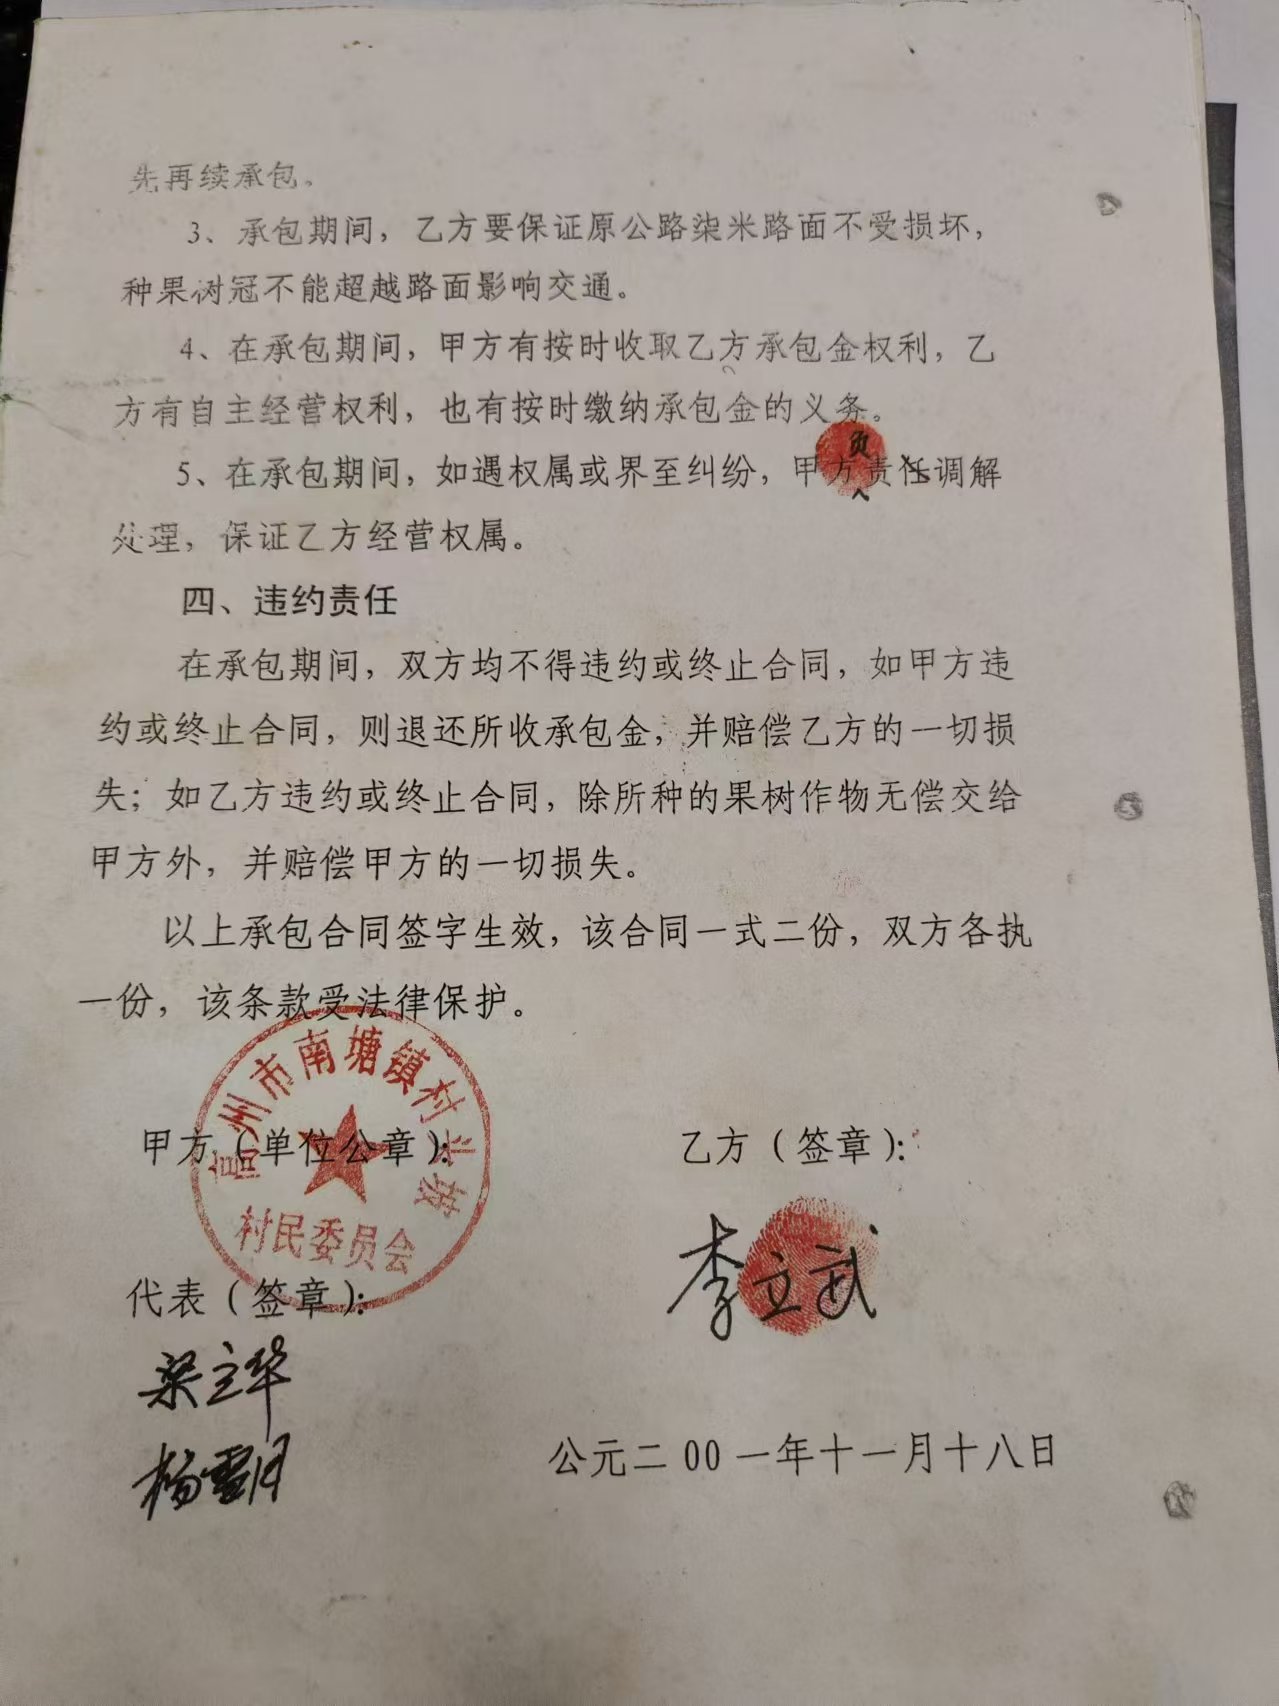 先再续承包。
3、承包期间，乙方要保证原公路柒米路面不受损坏，
种果树冠不能超越路面影响交通。
4、在承包期间，甲方有按时收取乙方承包金权利，乙
方有自主经营权利，也有按时缴纳承包金的义务。
负
5、在承包期间，如遇权属或界至纠纷，甲方责任调解
处理，保证乙方经营权属。
四、违约责任
在承包期间，双方均不得违约或终止合同，如甲方违
约或终止合同，则退还所收承包金，并赔偿乙方的一切损
失；如乙方违约或终止合同，除所种的果树作物无偿交给
甲方外，并赔偿甲方的一切损失。
以上承包合同签字生效，该合同一式二份，双方各执
一份，该条款受法律保护。
高州市南塘镇村头坡
村民委员会
甲方（单位公章）：
乙方（签章）：
李立武
代表（签章）：
梁立华
公元二00一年十一月十八日